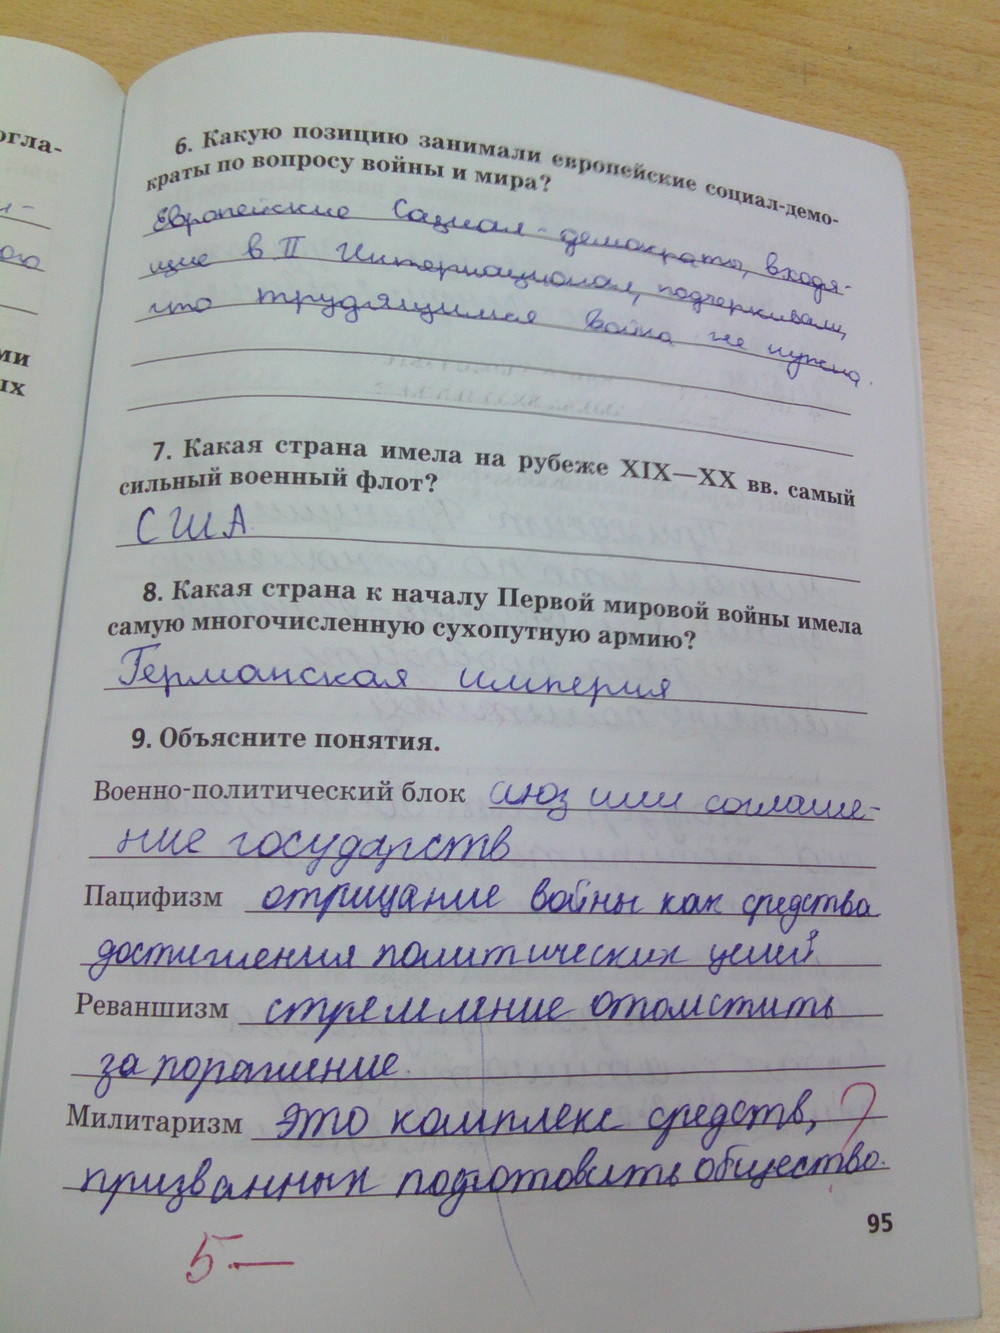 огла-
ми
ых
6. Какую позицию занимали европейские социал-демо-
краты по вопросу войны и мира?
Европейские Социал-демократы, входя-
щие в II Интернационал, подчеркивали,
что трудящимся война не нужна.
7. Какая страна имела на рубеже XIX—XX вв. самый
сильный военный флот?
США.
8. Какая страна к началу Первой мировой войны имела
самую многочисленную сухопутную армию?
Германская империя
9. Объясните понятия.
Военно-политический блок союз или соглаше-
ние государств
Пацифизм отрицание войны как средства
достижения политических целей.
Реваншизм стремление отомстить
за поражение.
Милитаризм это комплекс средств, ?
призванных подготовить общество.
95
5-